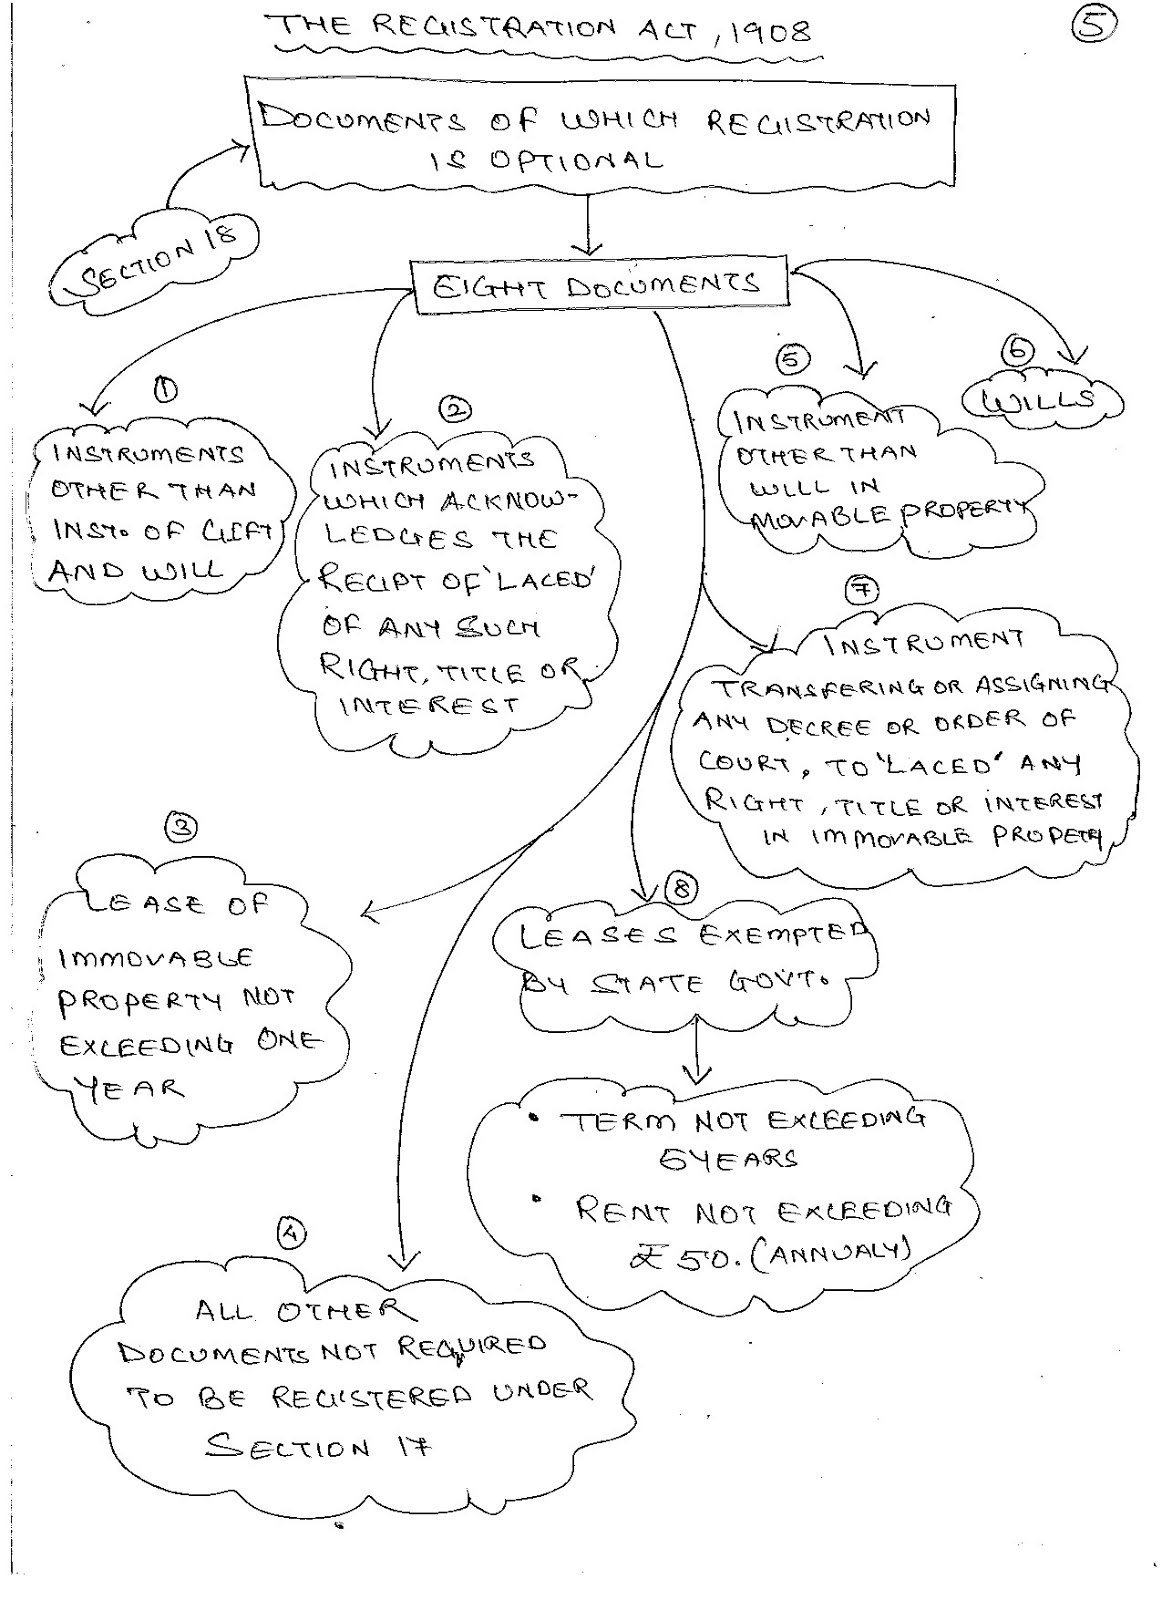 THE REGISTRATION ACT, 1908
5
DOCUMENTS OF WHICH REGISTRATION
IS OPTIONAL
SECTION 18
EIGHT DOCUMENTS
1
INSTRUMENTS
OTHER THAN
INST. OF GIFT
AND WILL
2
INSTRUMENTS
WHICH ACKNOW-
LEDGES THE
RECIPT OF 'LACED'
OF ANY SUCH
RIGHT, TITLE OR
INTEREST
5
INSTRUMENT
OTHER THAN
WILL IN
MOVABLE PROPERTY
6
WILLS
7
INSTRUMENT
TRANSFERING OR ASSIGNING
ANY DECREE OR ORDER OF
COURT, TO 'LACED' ANY
RIGHT, TITLE OR INTEREST
IN IMMOVABLE PROPETY
3
LEASE OF
IMMOVABLE
PROPERTY NOT
EXCEEDING ONE
YEAR
8
LEASES EXEMPTED
BY STATE GOVT.
• TERM NOT EXCEEDING
5YEARS
• RENT NOT EXCEEDING
₹ 50. (ANNUALY)
4
ALL OTHER
DOCUMENTS NOT REQUIRED
TO BE REGISTERED UNDER
SECTION 17